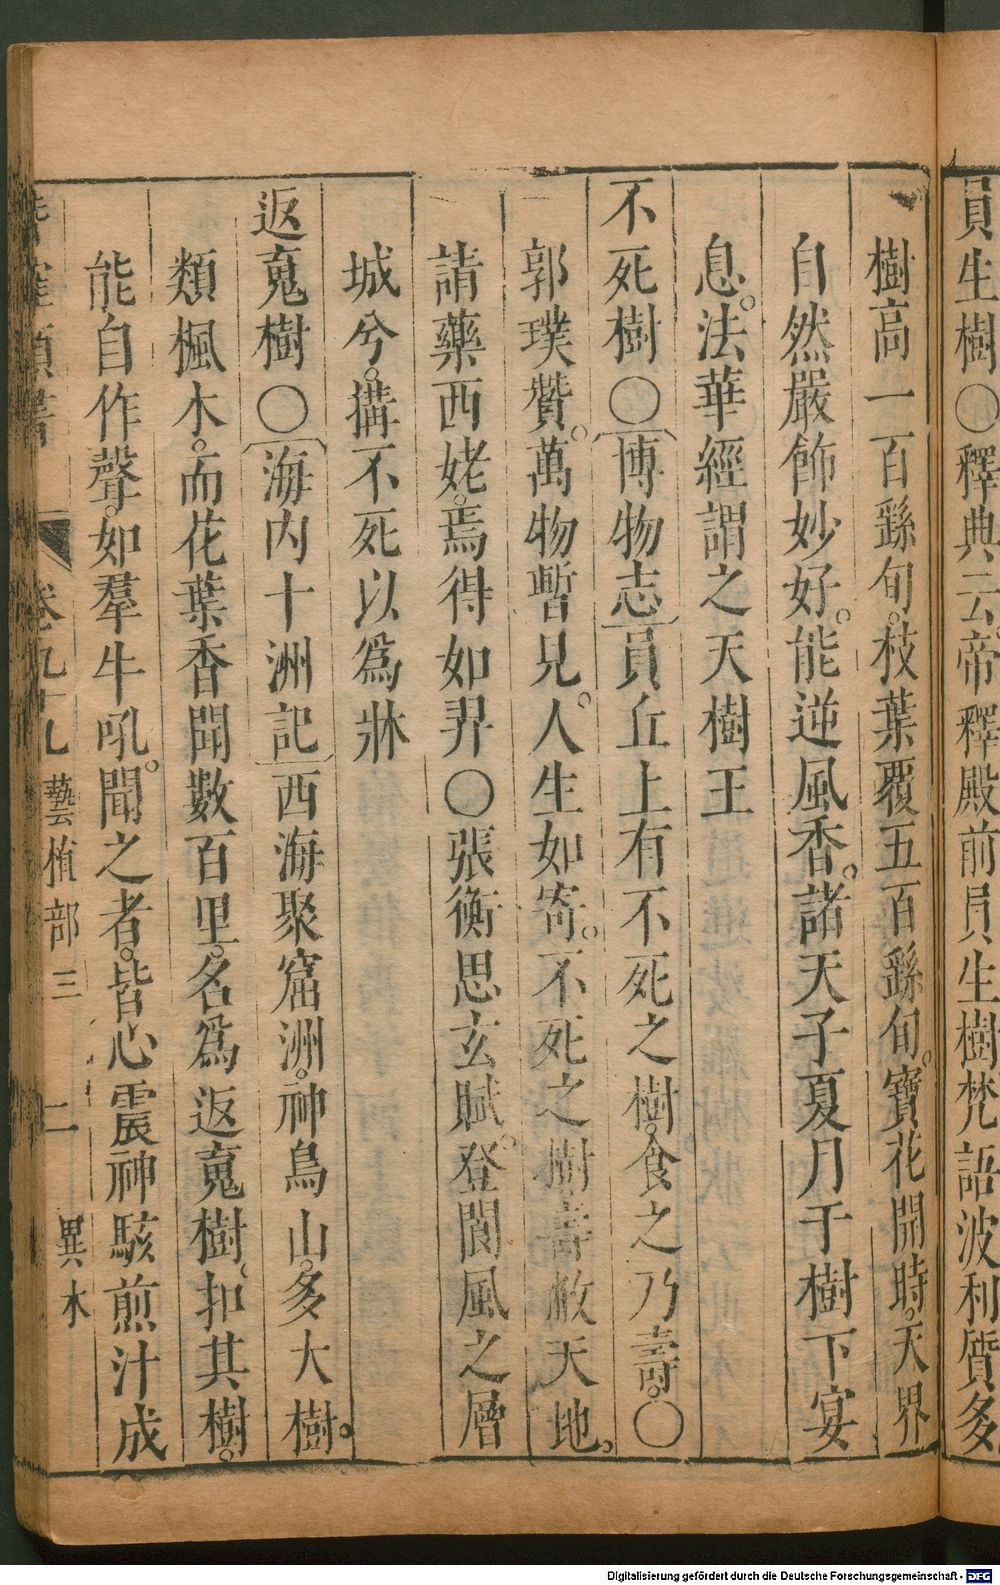 員生樹〇釋典云帝釋殿前員生樹梵語波利質多
樹高一百繇旬。枝葉覆五百繇旬。寶花開時。天界
自然嚴飾妙好。能逆風香。諸天子夏月于樹下宴
息。法華經謂之天樹王
不死樹〇〔博物志〕員丘上有不死之樹。食之乃壽。〇
郭璞贊。萬物暫見。人生如寄。不死之樹。壽敝天地。
請藥西姥。焉得如羿〇張衡思玄賦。登閬風之層
城兮。搆不死以爲牀
返䰟樹〇〔海内十洲記〕西海聚窟洲。神鳥山。多大樹。
類楓木。而花葉香聞數百里。名爲返䰟樹。扣其樹。
能自作聲。如羣牛吼。聞之者。皆心震神駭煎汁成
卷九十九 藝植部三 二 異木
Digitalisierung gefördert durch die Deutsche Forschungsgemeinschaft - DFG